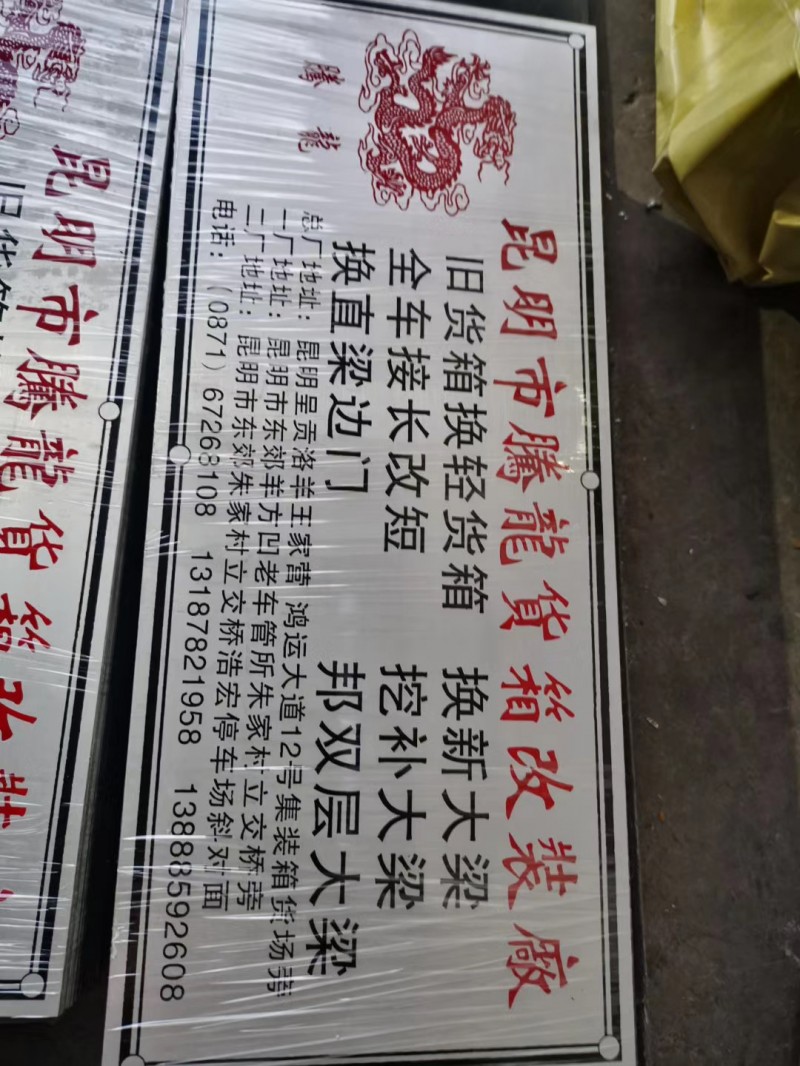 昆明市騰龍貨箱改裝廠
騰龍
旧货箱换轻货箱 换新大梁
全车接长改短 挖补大梁
换直梁边门 邦双层大梁
总厂地址：昆明呈贡洛羊王家营 鸿运大道12号集装箱货场旁
一厂地址：昆明市东郊羊方凹老车管所朱家村立交桥旁
二厂地址：昆明市东郊朱家村立交桥浩宏停车场斜对面
电话：（0871）67268108 13187821958 13888592608
昆明市騰龍貨箱改裝
旧货箱